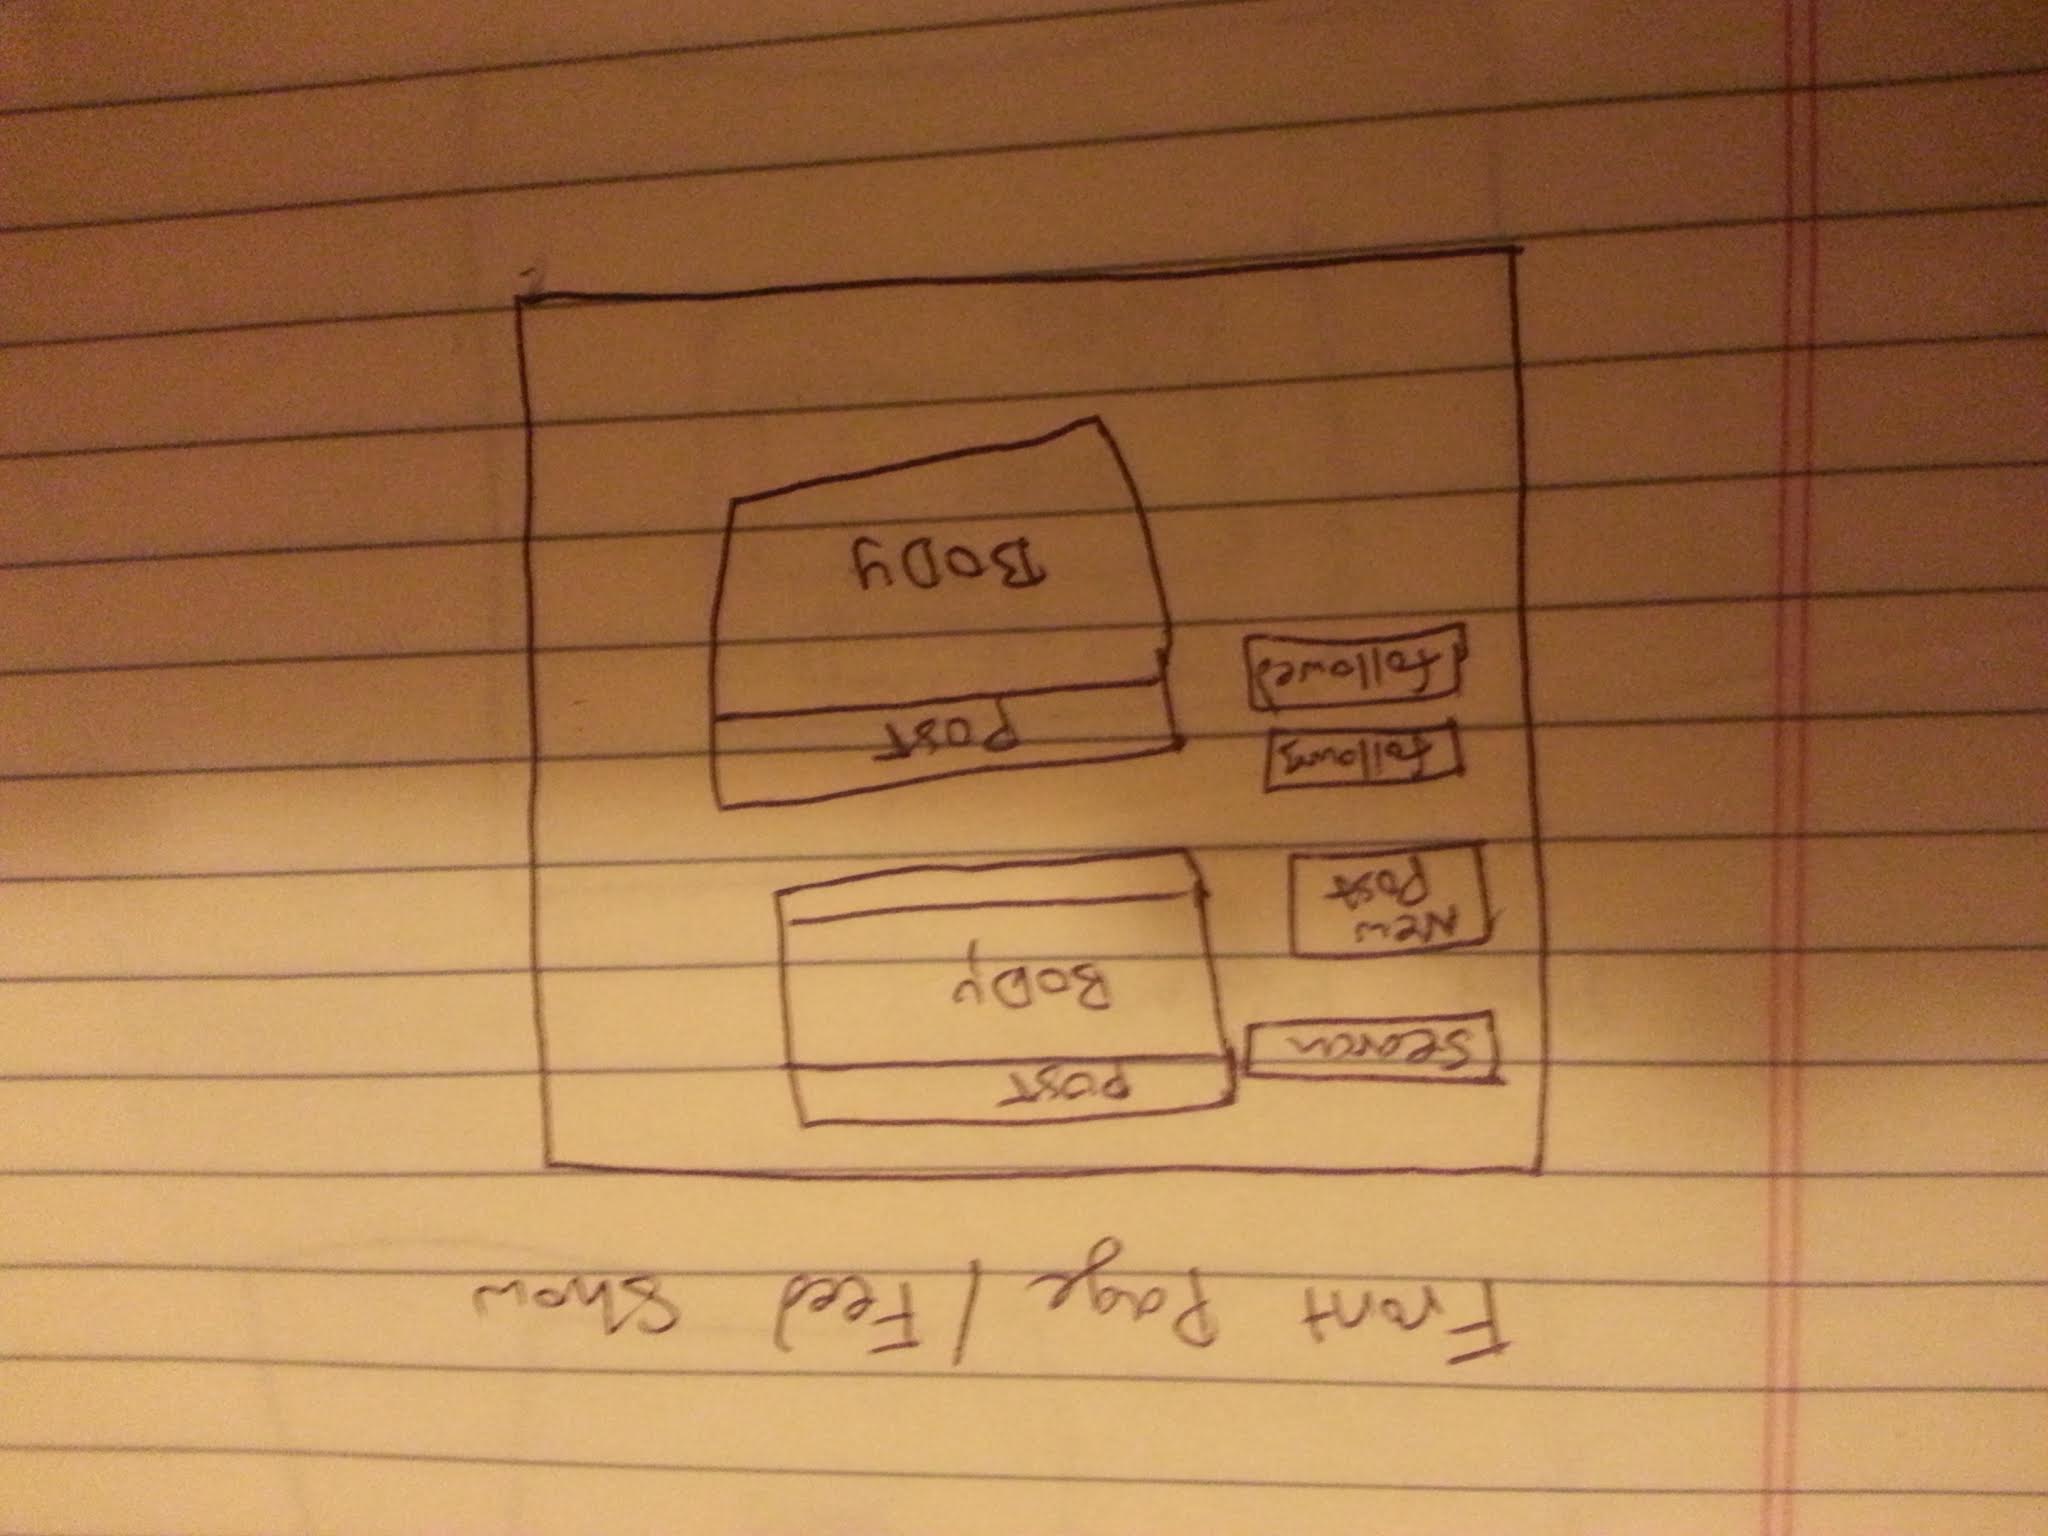 Front Page / Feed Show
Search
New
Post
following
followed
POST
BODY
POST
BODY